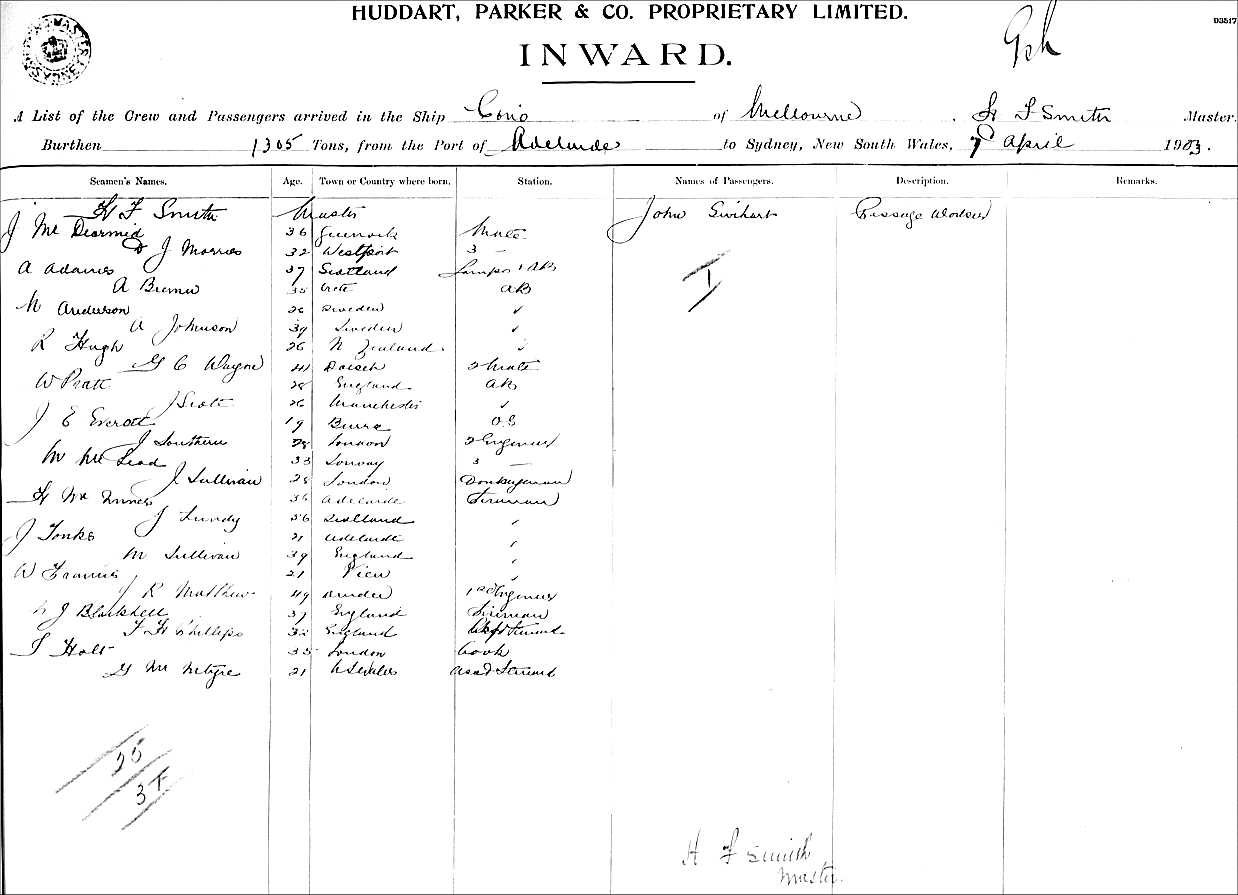 HUDDART, PARKER & CO. PROPRIETARY LIMITED.
D3517
INWARD.
A List of the Crew and Passengers arrived in the Ship Corio of Melbourne, H F Smith Master.
Burthen 1305 Tons, from the Port of Adelaide to Sydney, New South Wales, 7 April 1903.
Seamen's Names. Age. Town or Country where born. Station. Names of Passengers. Description. Remarks.
H F Smith Master John Passage Worker
J Mc Dearmid 36 Greenock Mate
J Morris 32 Westport 3 —
A Adams 37 Scotland Lamps & AB
A 35 AB
Anderson 26 Sweden ✓
A Johnson 39 Sweden ✓
R Hugh 26 N Zealand ✓
G C Wayne 41 2 Mate
W Pratt 28 England AB
J Scott 26 Manchester ✓
J E Everett 19 Burra O.S
J Southern 28 London 2 Engineer
M Mc 33 Norway 3 —
J Sullivan 28 London Donkeyman
H Mc Innes 36 Adelaide Fireman
J Lundy 36 Scotland
J Tonks 21 Adelaide
M Sullivan 39 England
W Francis 21
J R Matthew 49 Dundee 1st Engineer
J Blackhell 37 England Fireman
F H Phillips 32 England Steward
Holt 35 London Cook
G Mc Intyre 21 N S Wales Assd Steward
I
25
3
H F Smith
Master.